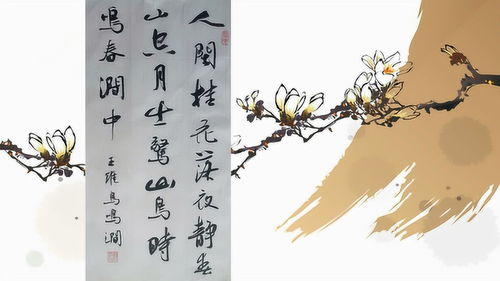 人閒桂花落夜靜春
山空月出驚山鳥時
鳴春澗中
王維鳥鳴澗